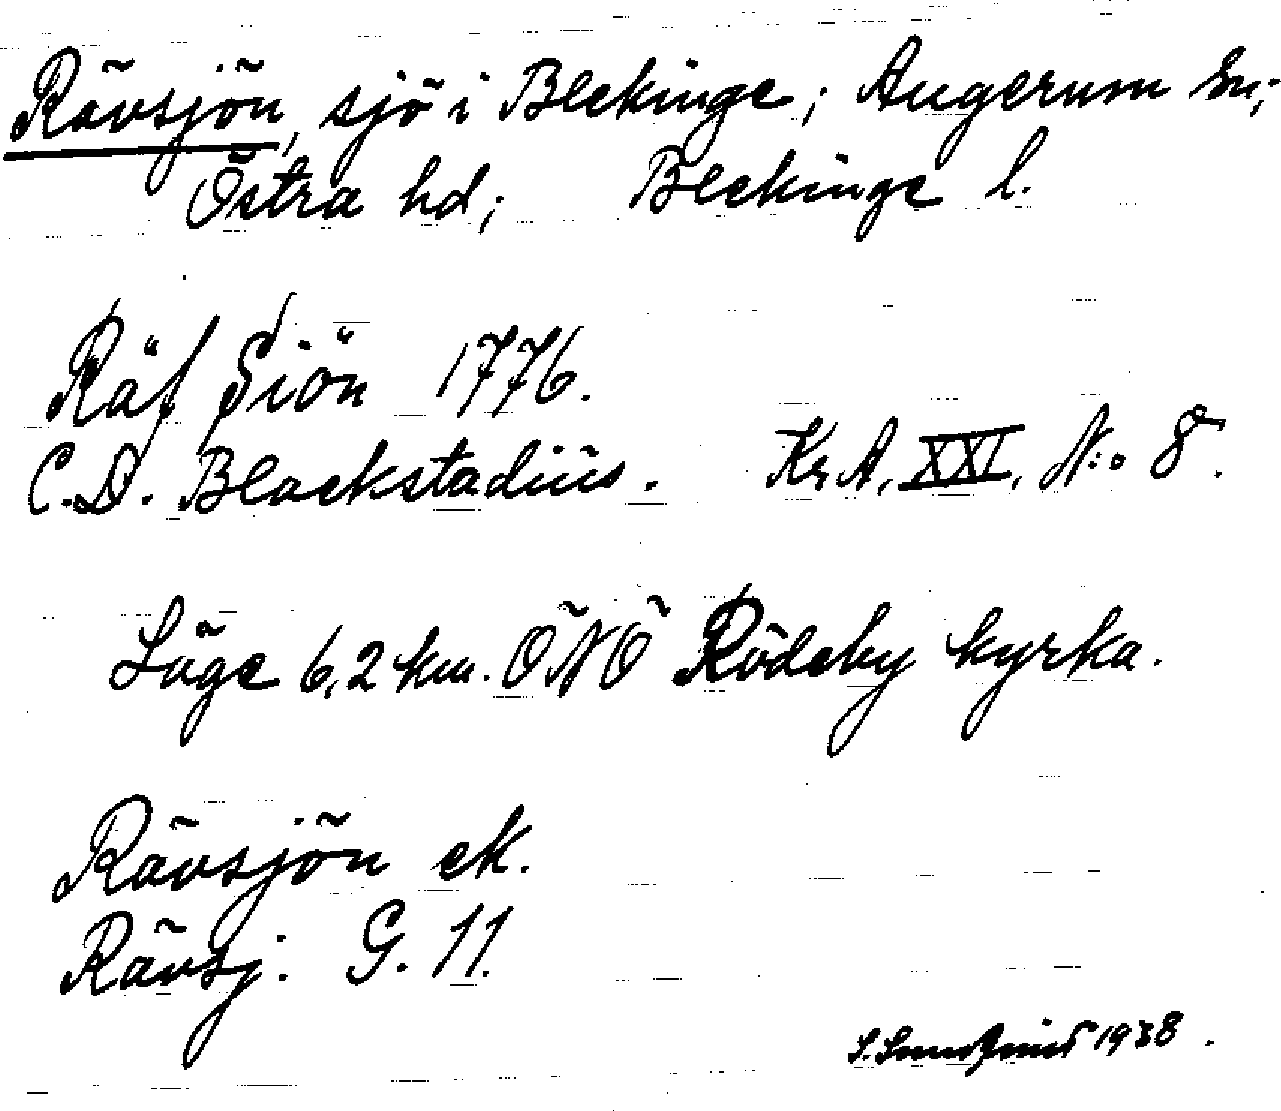 Rävsjön, sjö i Blekinge; Augerum sn;
Östra hd; Blekinge l.
Räf Siön 1776.
C.D. Blackstadius. Kr A, XXI, N:o 8.
Läge 6,2 km. ÖNÖ Rödeby kyrka.
Rävsjön ek.
Rävsj. G. 11.
1938.